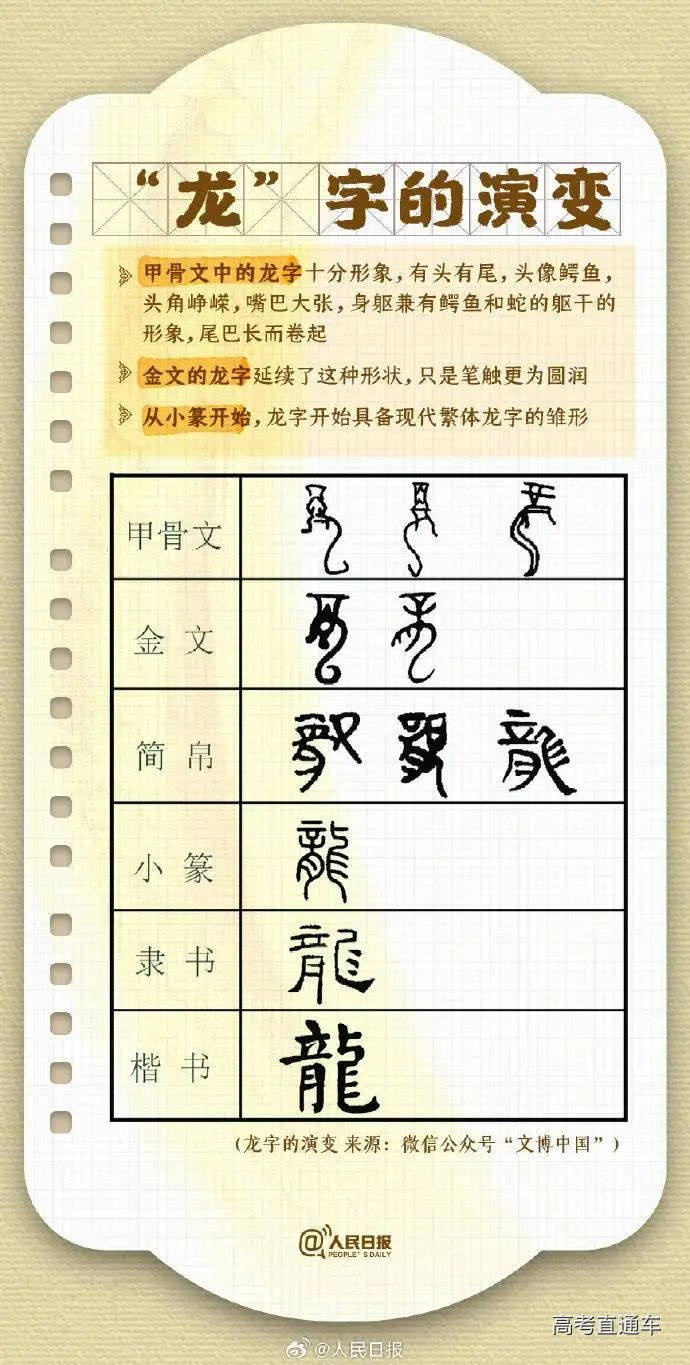 “龙”字的演变
甲骨文中的龙字十分形象，有头有尾，头像鳄鱼，
头角峥嵘，嘴巴大张，身躯兼有鳄鱼和蛇的躯干的
形象，尾巴长而卷起
金文的龙字延续了这种形状，只是笔触更为圆润
从小篆开始，龙字开始具备现代繁体龙字的雏形
甲骨文
金 文
简 帛 龍
小 篆 龍
隶 书 龍
楷 书 龍
（龙字的演变 来源：微信公众号“文博中国”）
@人民日报
PEOPLE'S DAILY
高考直通车
@人民日报